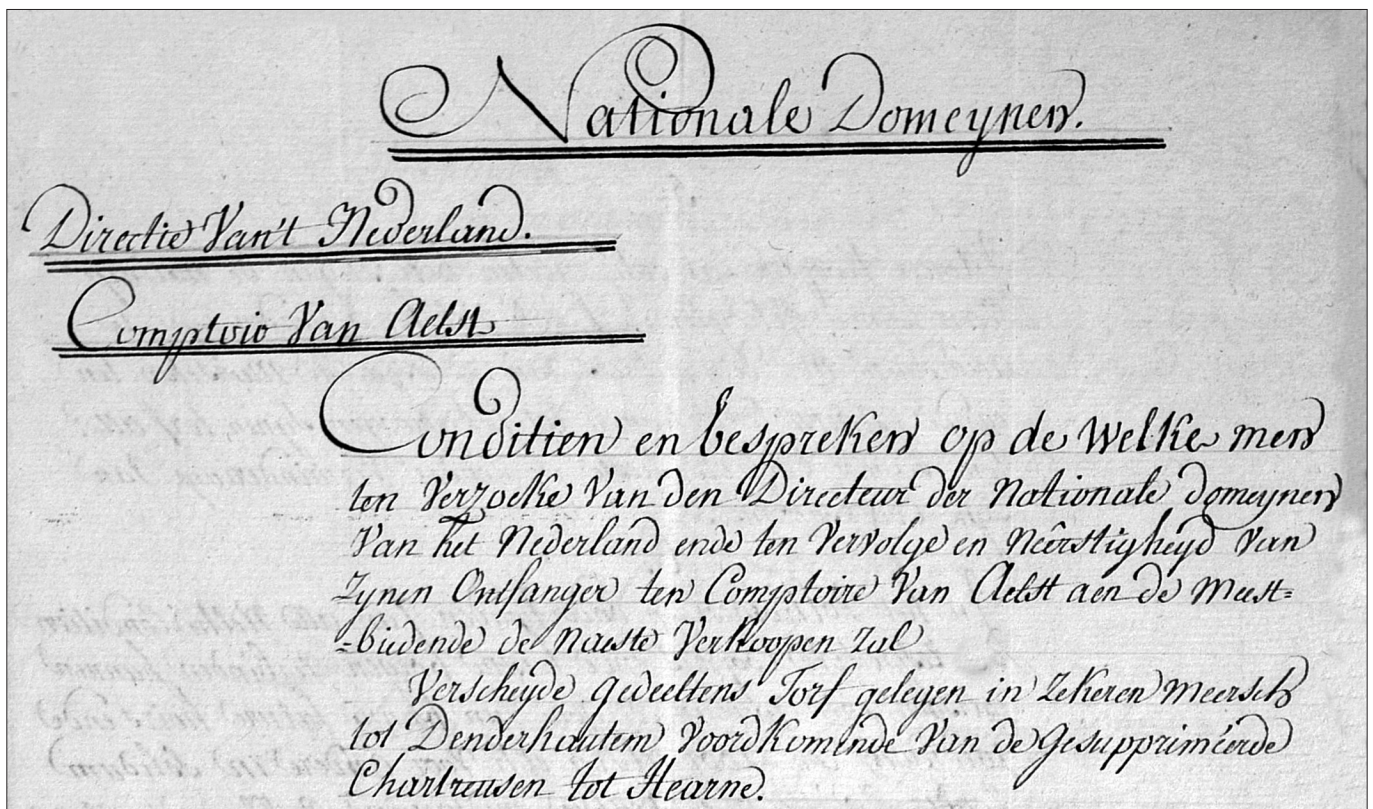 Nationale Domeynen.
Directie Van't Nederland.
Comptoir Van Aelst
Conditien en bespreken op de Welke men
ten Verzoeke Van den Directeur der Nationale domeynen
Van het Nederland ende ten Vervolge en Neêrstigheyd Van
Zynen Ontfanger ten Comptoire Van Aelst aen de Meest=
=biedende de Naeste Verkoopen zal
Verscheyde gedeeltens Torf gelegen in Zekeren Meersch
tot Denderhautem Voordkomende Van de gesupprimeérde
Chartreusen tot Hearne.